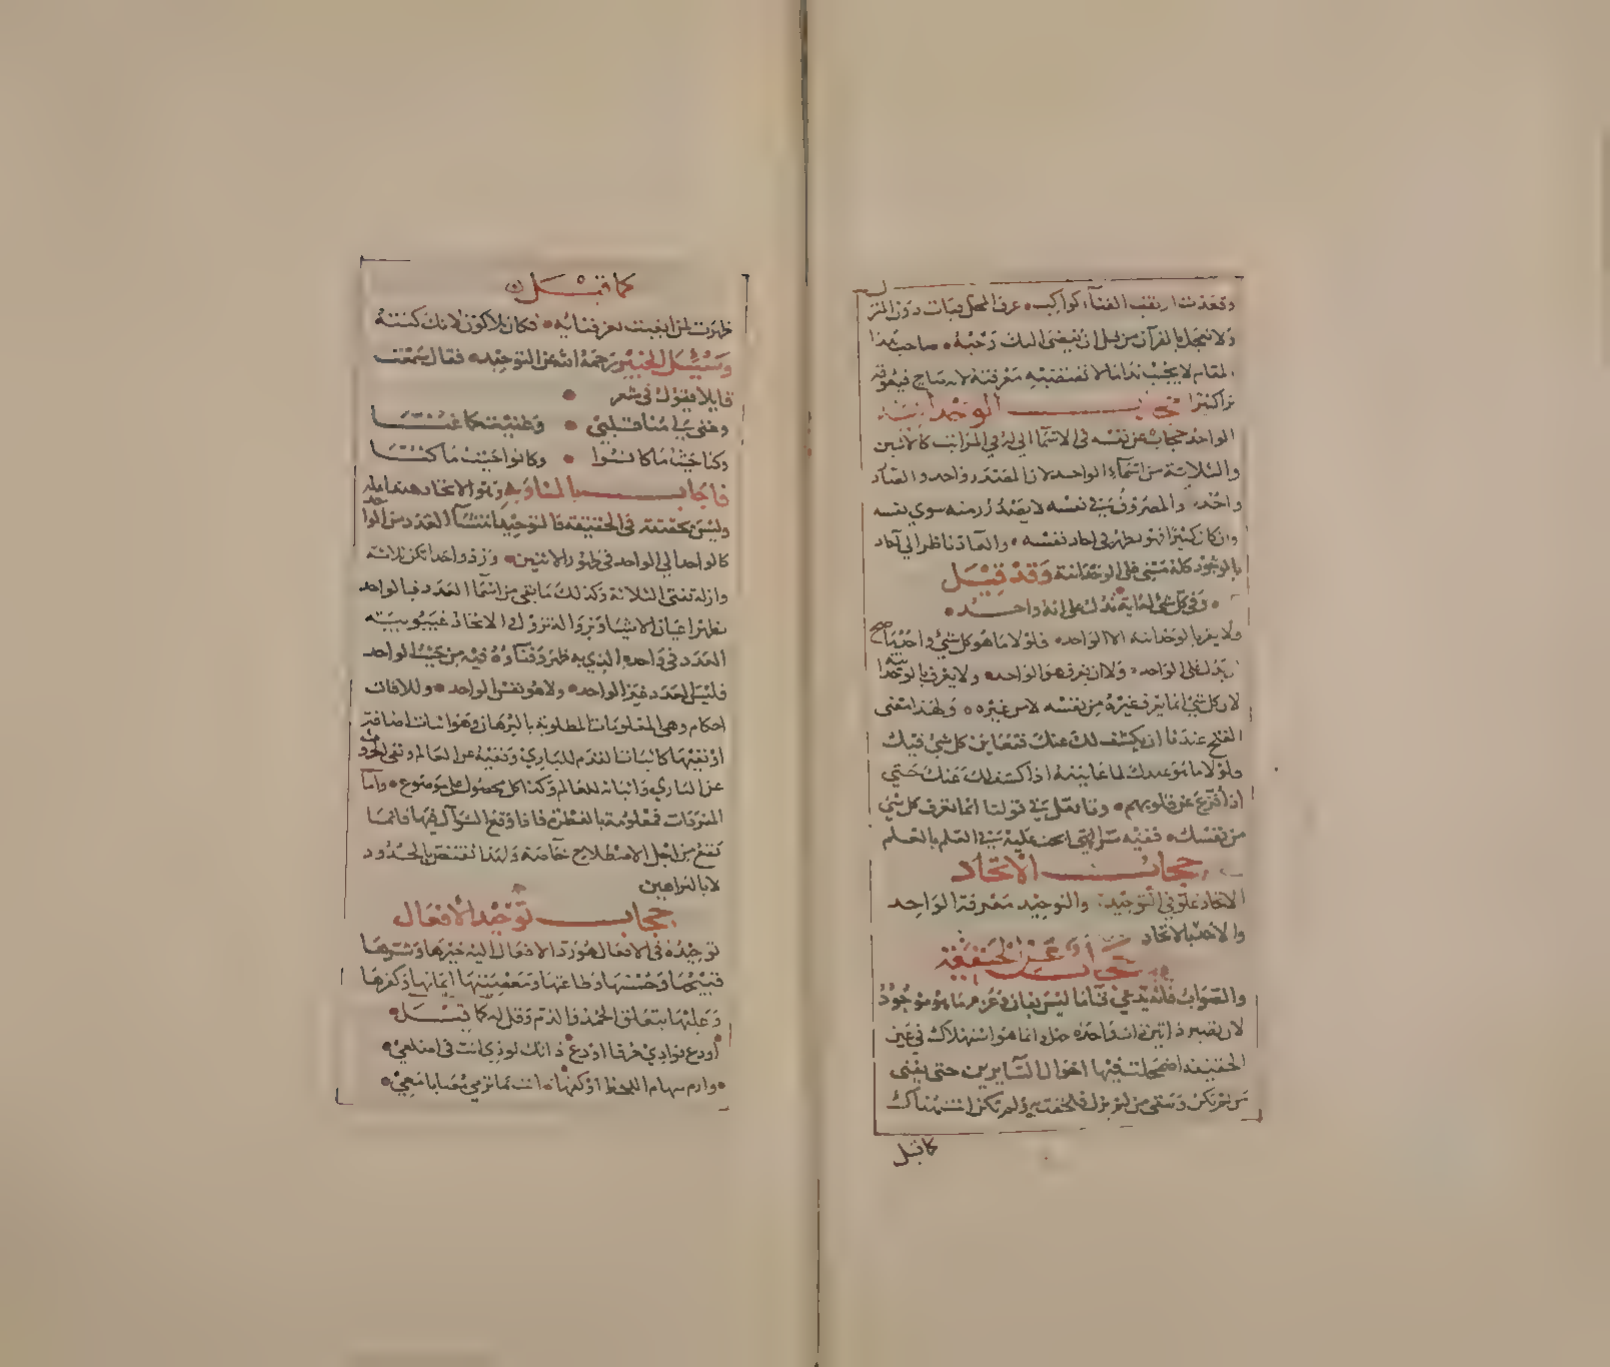 عرف المحل فبات دون المنزل
ولا تعجل بالقرآن من قبل ان يقضى اليك وحيه صاحب هذا
المقام لا يحجب
حجاب الوحدانية
الواحد حجاب عن نفسه في الاسماء التي له في المراتب كالاثنين
والثلاثة من اسماء الواحد لان المصدر واحد والصادر
واحد والمصروف في نفسه لا يصدر منه سوي نفسه
وان كان كثيرا فهو يظهر في احاد نفسه والعاد ناظر الي احاد
بالوجود كله مبني على الوحدانية وقد قيل
وفي كل شيء له اية تدل على انه واحد
ولا يعرف بالوحدانية الا الواحد فلولا ما هو كل شيء واحد ما صح
يدل على الواحد ولا ان يعرف هو الواحد ولا يعرف بالوحدانية
لان كل شيء انما يعرف غيره من نفسه لا من غيره ولهذا معنى
الفتح عندنا ان يكشف لك عنك فتعاين كل شيء فيك
ولولا ما هو عندك لما عاينته اذا كشف لك عنك حتي
اذا فزع عن قلوبهم وفائدة في قولنا انما تعرف كل شيء
من نفسك ففيه سر العلم بالعلم
حجاب الاتحاد
الاتحاد غلو في التوحيد والتوحيد معرفة الواحد
والاحد بالاتحاد
حجاب عن الحقيقة
والصواب فانه يدعي فنا ما ليس بفان وعدم ما هو موجود
لان يصير ذاتين ذات واحدة وانما هو استهلاك في عين
الحقيقة اضمحلت فيها احوال السايرين حتى يفنى
من لم يكن ويبقى من لم يزل فالحقيقة ولم تكن انت هناك
كما قيل
كما قيل
ظهرت لمن ابقيت بعد فنائه فكان بلا كون لانك كنته
وسئل الجنيد رحمه الله عن التوحيد فقال سمعت
قايلا يقول في شعر
وغنى لي منا قلبي وغنيت كما غنا
وكنا حيث ما كانوا وكانوا حيث ما كنا
فاجاب بالمساوة وهو الاتحاد
وليس بحقيقة في الحقيقة فالتوحيد انتشا العدد من الواحد
كالواحد الي الواحد في ظهور الاثنين وزد واحدا تكن ثلاثة
وازله تفنى الثلاثة وكذلك ما بقي من اسما العدد فبالواحد
تظهر اعيان الاشيا وبزواله تزول والاتحاد غيبوبية
العدد في واحده الذي به ظهر وفناؤه فيه من حيث الواحد
فليس العدد غير الواحد ولا هو نفس الواحد وللافات
احكام وهي المعلومات المطلوبة بالبرهان وهو اثبات اضافة
او نفيها كاثباتنا القدم للباري ونفيه عن العالم ونفي الحدوث
عن الباري واثباته للعالم وكذا كل محمول على موضوع واما
المفردات فمعلومة بالفطرة فاذا وقع السؤال فيها فانما
تقع من اجل الاصطلاح خاصة ولهذا تقتنص بالحدود
لا بالبراهين
حجاب توحيد الافعال
توحيده في الافعال هو رد الافعال اليه خيرها وشرها
قبيحها وحسنها وطاعتها ومعصيتها ايمانها وكفرها
وعليها يتعلق الحمد والذم وقل له كما قيل
اودع فؤادي حرقا او دع ذاتك توذي انت في اضلعي
وارم سهام اللحظ او كفها انت بما ترمي مصاب معي